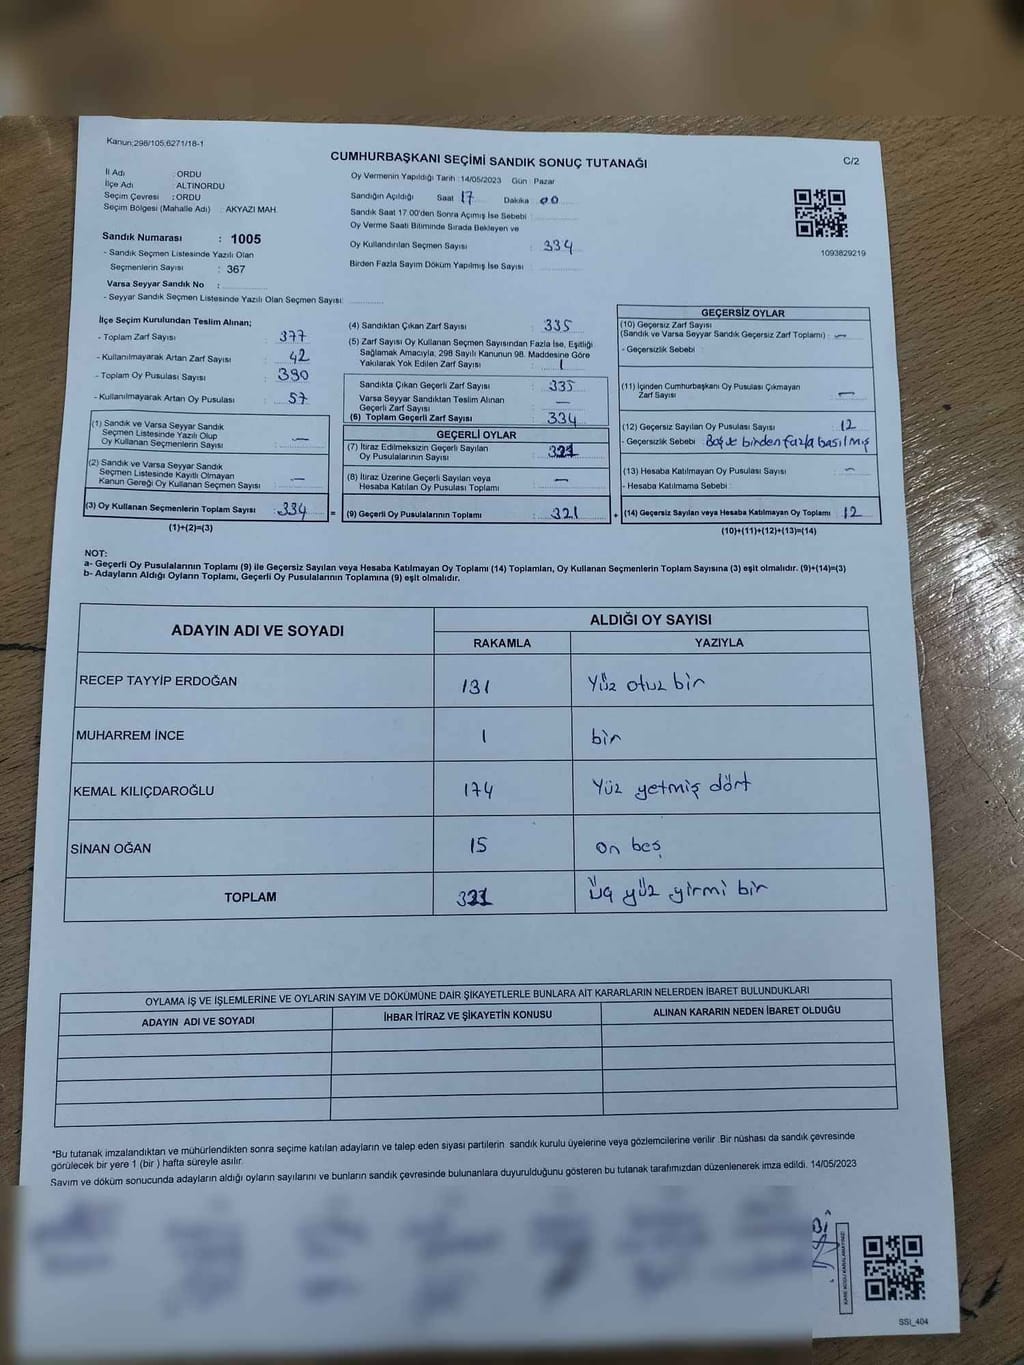 Kanun;298/105,6271/18-1
CUMHURBAŞKANI SEÇİMİ SANDIK SONUÇ TUTANAĞI
C/2
İl Adı : ORDU
İlçe Adı : ALTINORDU
Seçim Çevresi : ORDU
Seçim Bölgesi (Mahalle Adı) : AKYAZI MAH.
Sandık Numarası : 1005
- Sandık Seçmen Listesinde Yazılı Olan
Seçmenlerin Sayısı : 367
Varsa Seyyar Sandık No :
- Seyyar Sandık Seçmen Listesinde Yazılı Olan Seçmen Sayısı:
Oy Vermenin Yapıldığı Tarih :14/05/2023 Gün : Pazar
Sandığın Açıldığı Saat 17 Dakika 00
Sandık Saat 17.00'den Sonra Açımış İse Sebebi :
Oy Verme Saati Bitiminde Sırada Bekleyen ve
Oy Kullandırılan Seçmen Sayısı : 334
Birden Fazla Sayım Döküm Yapılmış İse Sayısı :
1093829219
İlçe Seçim Kurulundan Teslim Alınan;
- Toplam Zarf Sayısı : 377
- Kullanılmayarak Artan Zarf Sayısı : 42
- Toplam Oy Pusulası Sayısı : 390
- Kullanılmayarak Artan Oy Pusulası : 57
(1) Sandık ve Varsa Seyyar Sandık
Seçmen Listesinde Yazılı Olup
Oy Kullanan Seçmenlerin Sayısı : —
(2) Sandık ve Varsa Seyyar Sandık
Seçmen Listesinde Kayıtlı Olmayan
Kanun Gereği Oy Kullanan Seçmen Sayısı : —
(3) Oy Kullanan Seçmenlerin Toplam Sayısı : 334 =
(1)+(2)=(3)
(4) Sandıktan Çıkan Zarf Sayısı : 335
(5) Zarf Sayısı Oy Kullanan Seçmen Sayısından Fazla İse, Eşitliği
Sağlamak Amacıyla, 298 Sayılı Kanunun 98. Maddesine Göre
Yakılarak Yok Edilen Zarf Sayısı : 1
Sandıkta Çıkan Geçerli Zarf Sayısı : 335
Varsa Seyyar Sandıktan Teslim Alınan
Geçerli Zarf Sayısı : —
(6) Toplam Geçerli Zarf Sayısı : 334
GEÇERLİ OYLAR
(7) İtiraz Edilmeksizin Geçerli Sayılan
Oy Pusulalarının Sayısı : 321
(8) İtiraz Üzerine Geçerli Sayılan veya
Hesaba Katılan Oy Pusulası Toplamı : —
(9) Geçerli Oy Pusulalarının Toplamı : 321 +
GEÇERSİZ OYLAR
(10) Geçersiz Zarf Sayısı
(Sandık ve Varsa Seyyar Sandık Geçersiz Zarf Toplamı) : —
- Geçersizlik Sebebi :
(11) İçinden Cumhurbaşkanı Oy Pusulası Çıkmayan
Zarf Sayısı : —
(12) Geçersiz Sayılan Oy Pusulası Sayısı : 12
- Geçersizlik Sebebi : Boş birden fazla basılmış
(13) Hesaba Katılmayan Oy Pusulası Sayısı : —
- Hesaba Katılmama Sebebi :
(14) Geçersiz Sayılan veya Hesaba Katılmayan Oy Toplamı : 12
(10)+(11)+(12)+(13)=(14)
NOT:
a- Geçerli Oy Pusulalarının Toplamı (9) ile Geçersiz Sayılan veya Hesaba Katılmayan Oy Toplamı (14) Toplamları, Oy Kullanan Seçmenlerin Toplam Sayısına (3) eşit olmalıdır. (9)+(14)=(3)
b- Adayların Aldığı Oyların Toplamı, Geçerli Oy Pusulalarının Toplamına (9) eşit olmalıdır.
ADAYIN ADI VE SOYADI ALDIĞI OY SAYISI
RAKAMLA YAZIYLA
RECEP TAYYİP ERDOĞAN 131 Yüz otuz bir
MUHARREM İNCE 1 bir
KEMAL KILIÇDAROĞLU 174 Yüz yetmiş dört
SİNAN OĞAN 15 on beş
TOPLAM 321 üç yüz yirmi bir
OYLAMA İŞ VE İŞLEMLERİNE VE OYLARIN SAYIM VE DÖKÜMÜNE DAİR ŞİKAYETLERLE BUNLARA AİT KARARLARIN NELERDEN İBARET BULUNDUKLARI
ADAYIN ADI VE SOYADI İHBAR İTİRAZ VE ŞİKAYETİN KONUSU ALINAN KARARIN NEDEN İBARET OLDUĞU
*Bu tutanak imzalandıktan ve mühürlendikten sonra seçime katılan adayların ve talep eden siyasi partilerin sandık kurulu üyelerine veya gözlemcilerine verilir .Bir nüshası da sandık çevresinde
görülecek bir yere 1 (bir ) hafta süreyle asılır.
Sayım ve döküm sonucunda adayların aldığı oyların sayılarını ve bunların sandık çevresinde bulunanlara duyurulduğunu gösteren bu tutanak tarafımızdan düzenlenerek imza edildi. 14/05/2023
SSI_404